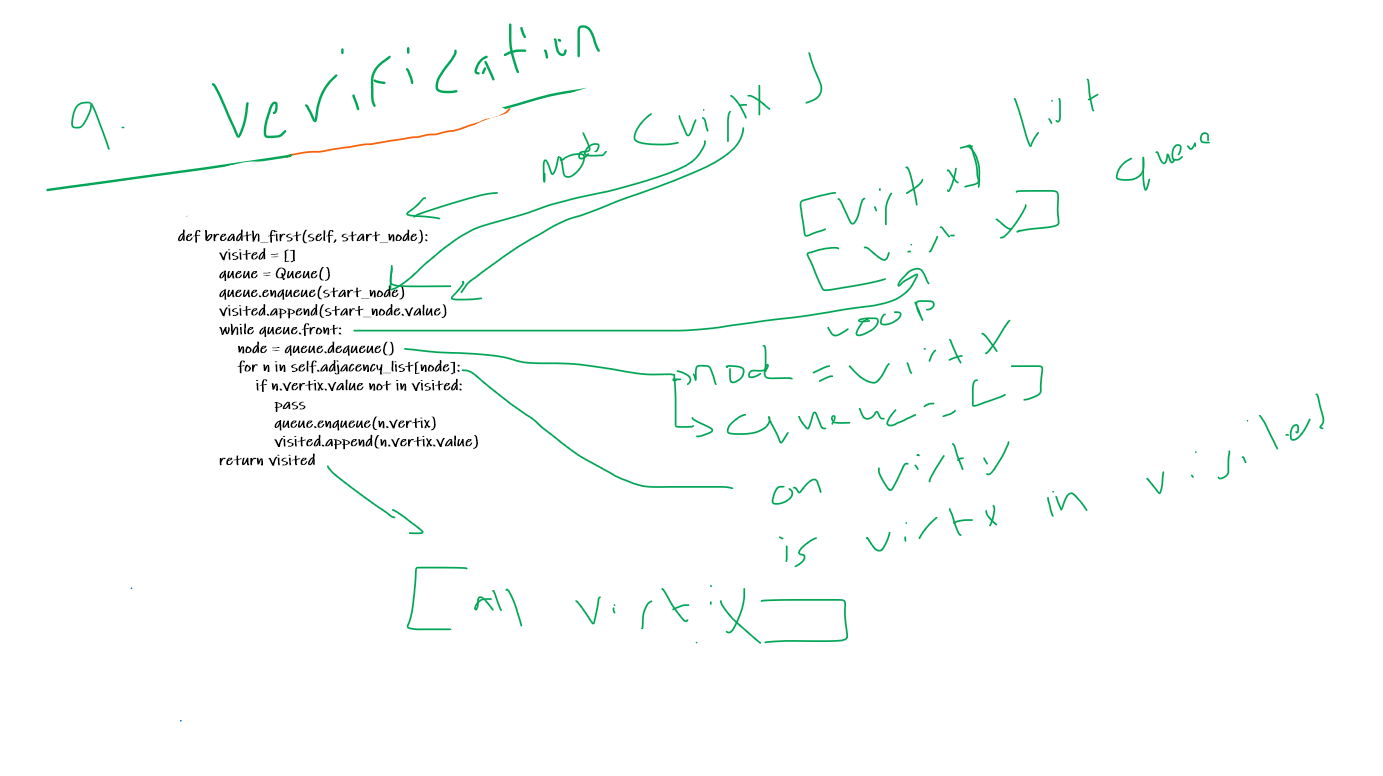 9. Verification
Node (virtX)
[virt x] List
[virt y] queue
def breadth_first(self, start_node):
visited = []
queue = Queue()
queue.enqueue(start_node)
visited.append(start_node.value)
while queue.front:
node = queue.dequeue()
for n in self.adjacency_list[node]:
if n.vertix.value not in visited:
pass
queue.enqueue(n.vertix)
visited.append(n.vertix.value)
return visited
LOOP
node = virtX
queue = []
on virty
is virtx in visited
[All virtix]